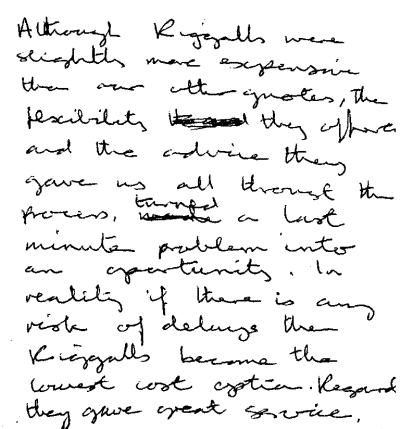 Although Riggalls were
slightly more expensive
than our other quotes, the
flexibility they offere
and the advice they
gave us all throust the
process, turned a last
minute problem into
an oportunity. In
reality if there is any
risk of delays then
Riggalls become the
lowest cost option. Regard
they gave great service.